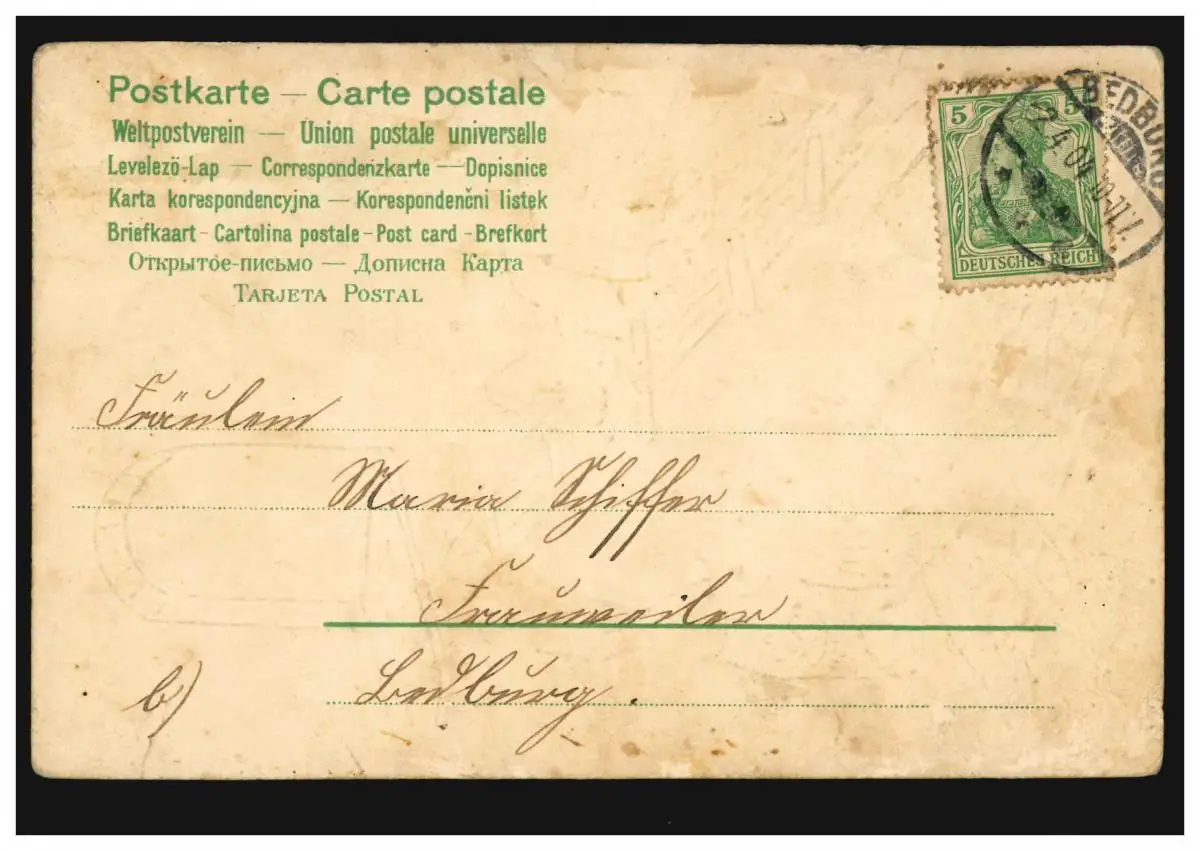 Postkarte — Carte postale
Weltpostverein — Union postale universelle
Levelező-Lap — Correspondenzkarte — Dopisnice
Karta korespondencyjna — Korespondenčni listek
Briefkaart - Cartolina postale - Post card - Brefkort
Открытое-письмо — Дописна Карта
Tarjeta Postal
5 5
DEUTSCHES REICH
BEDBURG
Fräulein
Maria Schiffer
Frauweiler
b) Bedburg.